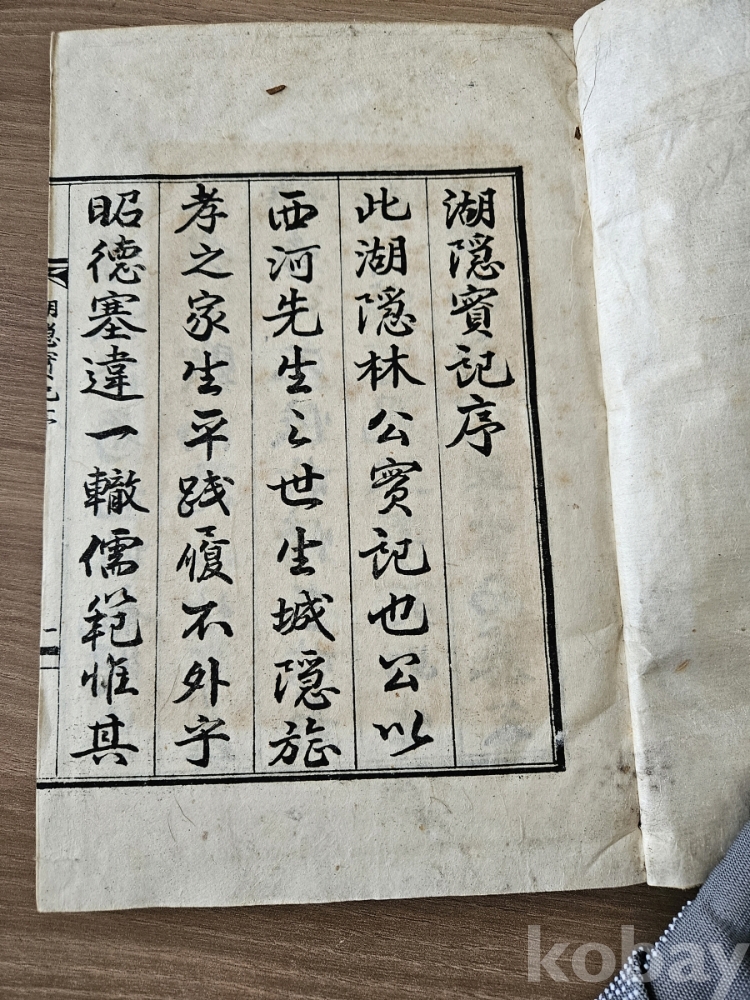 湖隠實記序
此湖隠林公實記也公以
西河先生之世生城隠旌
孝之家生平踐履不外乎
昭德塞違一轍儒範惟其
湖隠實記序
kobay